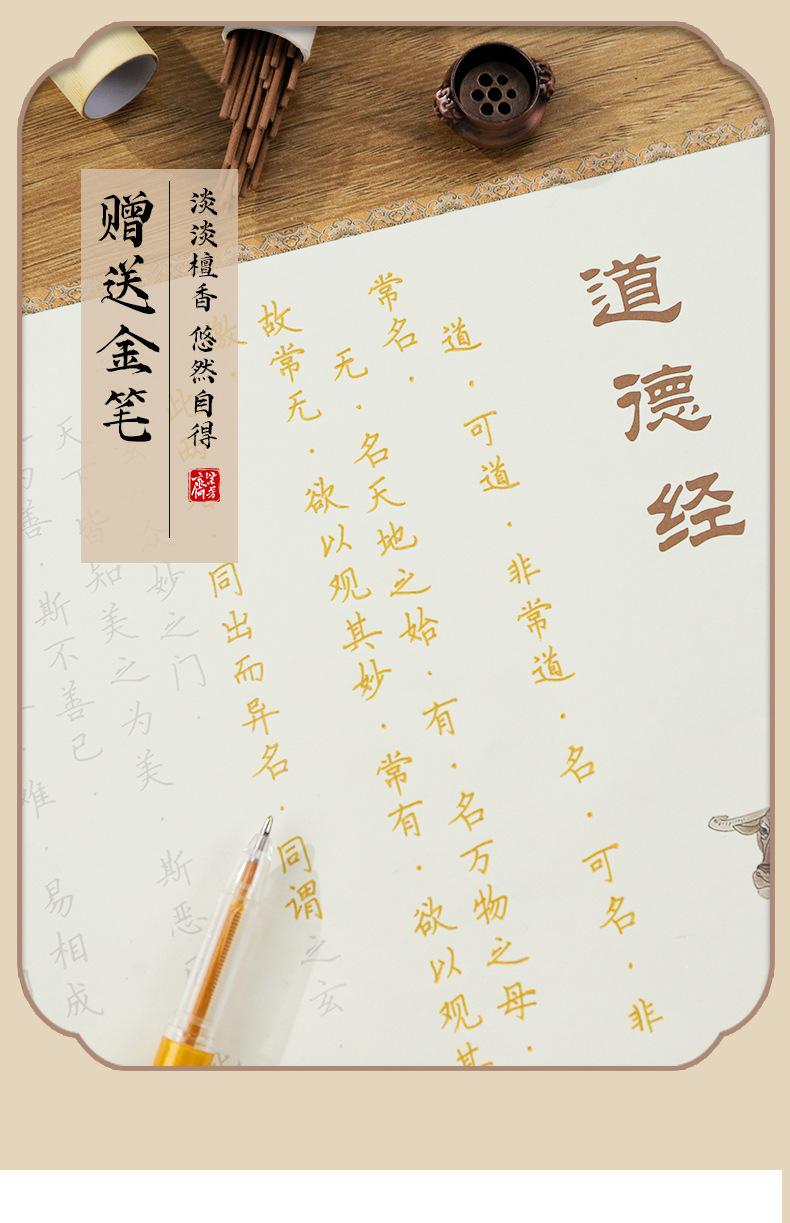 赠送金笔
淡淡檀香 悠然自得
道德经
道·可道·非常道·名·可名·非
常名·
无·名天地之始·有·名万物之母·
故常无·欲以观其妙·常有·欲以观其
徼·
此两者·同出而异名·同谓之玄
众妙之门·
天下皆知美之为美·斯恶
善·斯不善已·
难·易相成